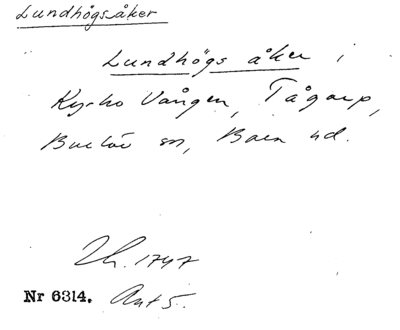 Lundhögsåker
Lundhögs åker i
Kyrko Vången, Tågarp,
Burlöv sn, Bara hd.
Lh. 1747
Nr 6314. Ant 5.